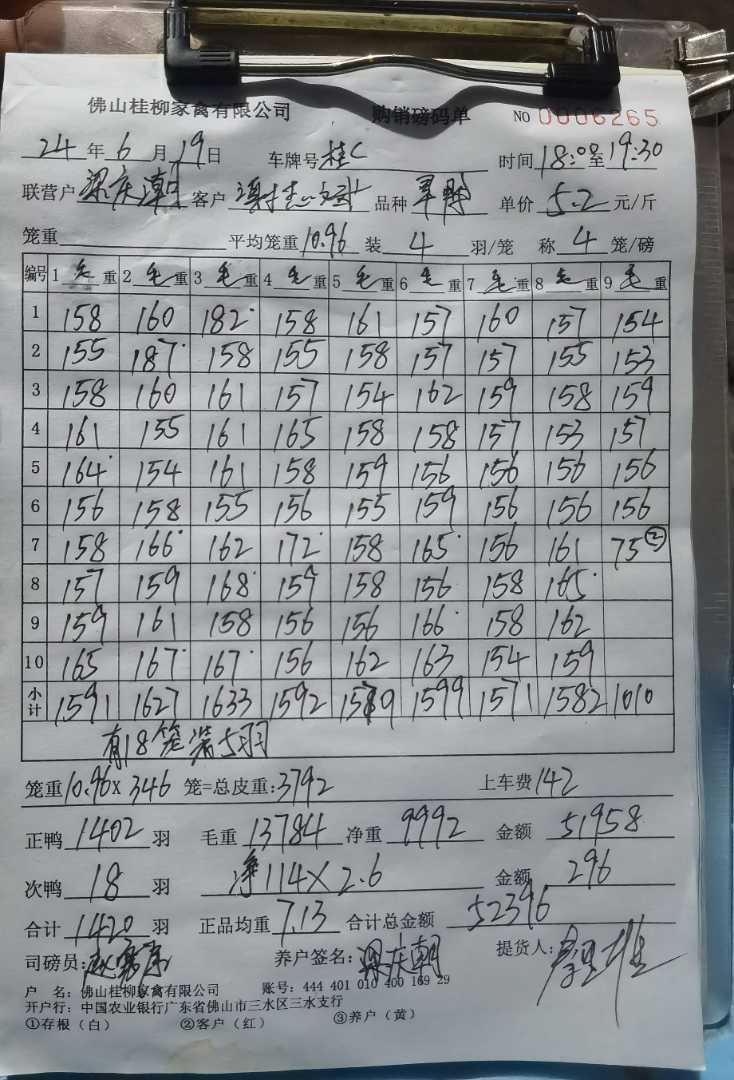 佛山桂柳家禽有限公司 购销磅码单 NO 0006265
24年6月19日 车牌号桂C 时间18:08至19:30
联营户梁庆潮 客户 品种 单价5.2元/斤
笼重 平均笼重10.96装4羽/笼 称4笼/磅
编号 1毛重 2毛重 3毛重 4毛重 5毛重 6毛重 7毛重 8毛重 9毛重
1 158 160 182 158 161 157 160 157 154
2 155 187 158 155 158 157 157 155 153
3 158 160 161 157 154 162 159 158 159
4 161 155 161 165 158 158 157 153 157
5 164 154 161 158 159 156 156 156 156
6 156 158 155 156 155 159 156 156 156
7 158 166 162 172 158 165 156 161 75②
8 157 159 168 159 158 156 158 165
9 159 161 158 156 156 166 158 162
10 165 167 167 156 162 163 154 159
小计 1591 1627 1633 1592 1579 1599 1571 1582 1010
有18笼装5羽
笼重10.96×346笼=总皮重:3792 上车费142
正鸭1402羽 毛重13784净重9992 金额51958
次鸭18羽 净114×2.6 金额296
合计1420羽 正品均重7.13 合计总金额52396
司磅员: 养户签名:梁庆朝 提货人:
户 名:佛山桂柳家禽有限公司 账号:444 401 010 400 169 29
开户行:中国农业银行广东省佛山市三水区三水支行
①存根(白) ②客户(红) ③养户(黄)